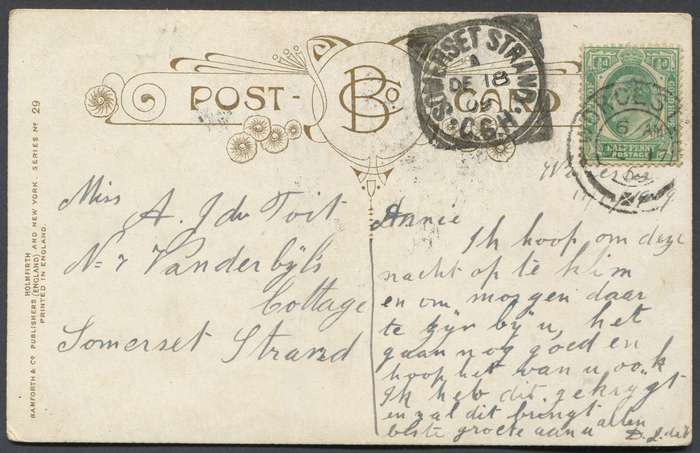 POST-
BCo.
CARD
SOMERSET STRAND.
A
DE 18
09
C.G.H.
WORCESTER
6 AM
½d
HALFPENNY
POSTAGE
BAMFORTH & CO PUBLISHERS (ENGLAND) AND NEW YORK - SERIES No 29
HOLMFIRTH
PRINTED IN ENGLAND.
Miss A. J du Toit
No 7 Vanderbijl's
Cottage
Somerset Strand
Annie
Ik hoop om deze
nacht op te klim
en om morgen daar
te zyn by u, het
gaan nog goed en
hoop het van u ook
Ik heb dit gekrygt
en zal dit brengt
beste groete aan u allen